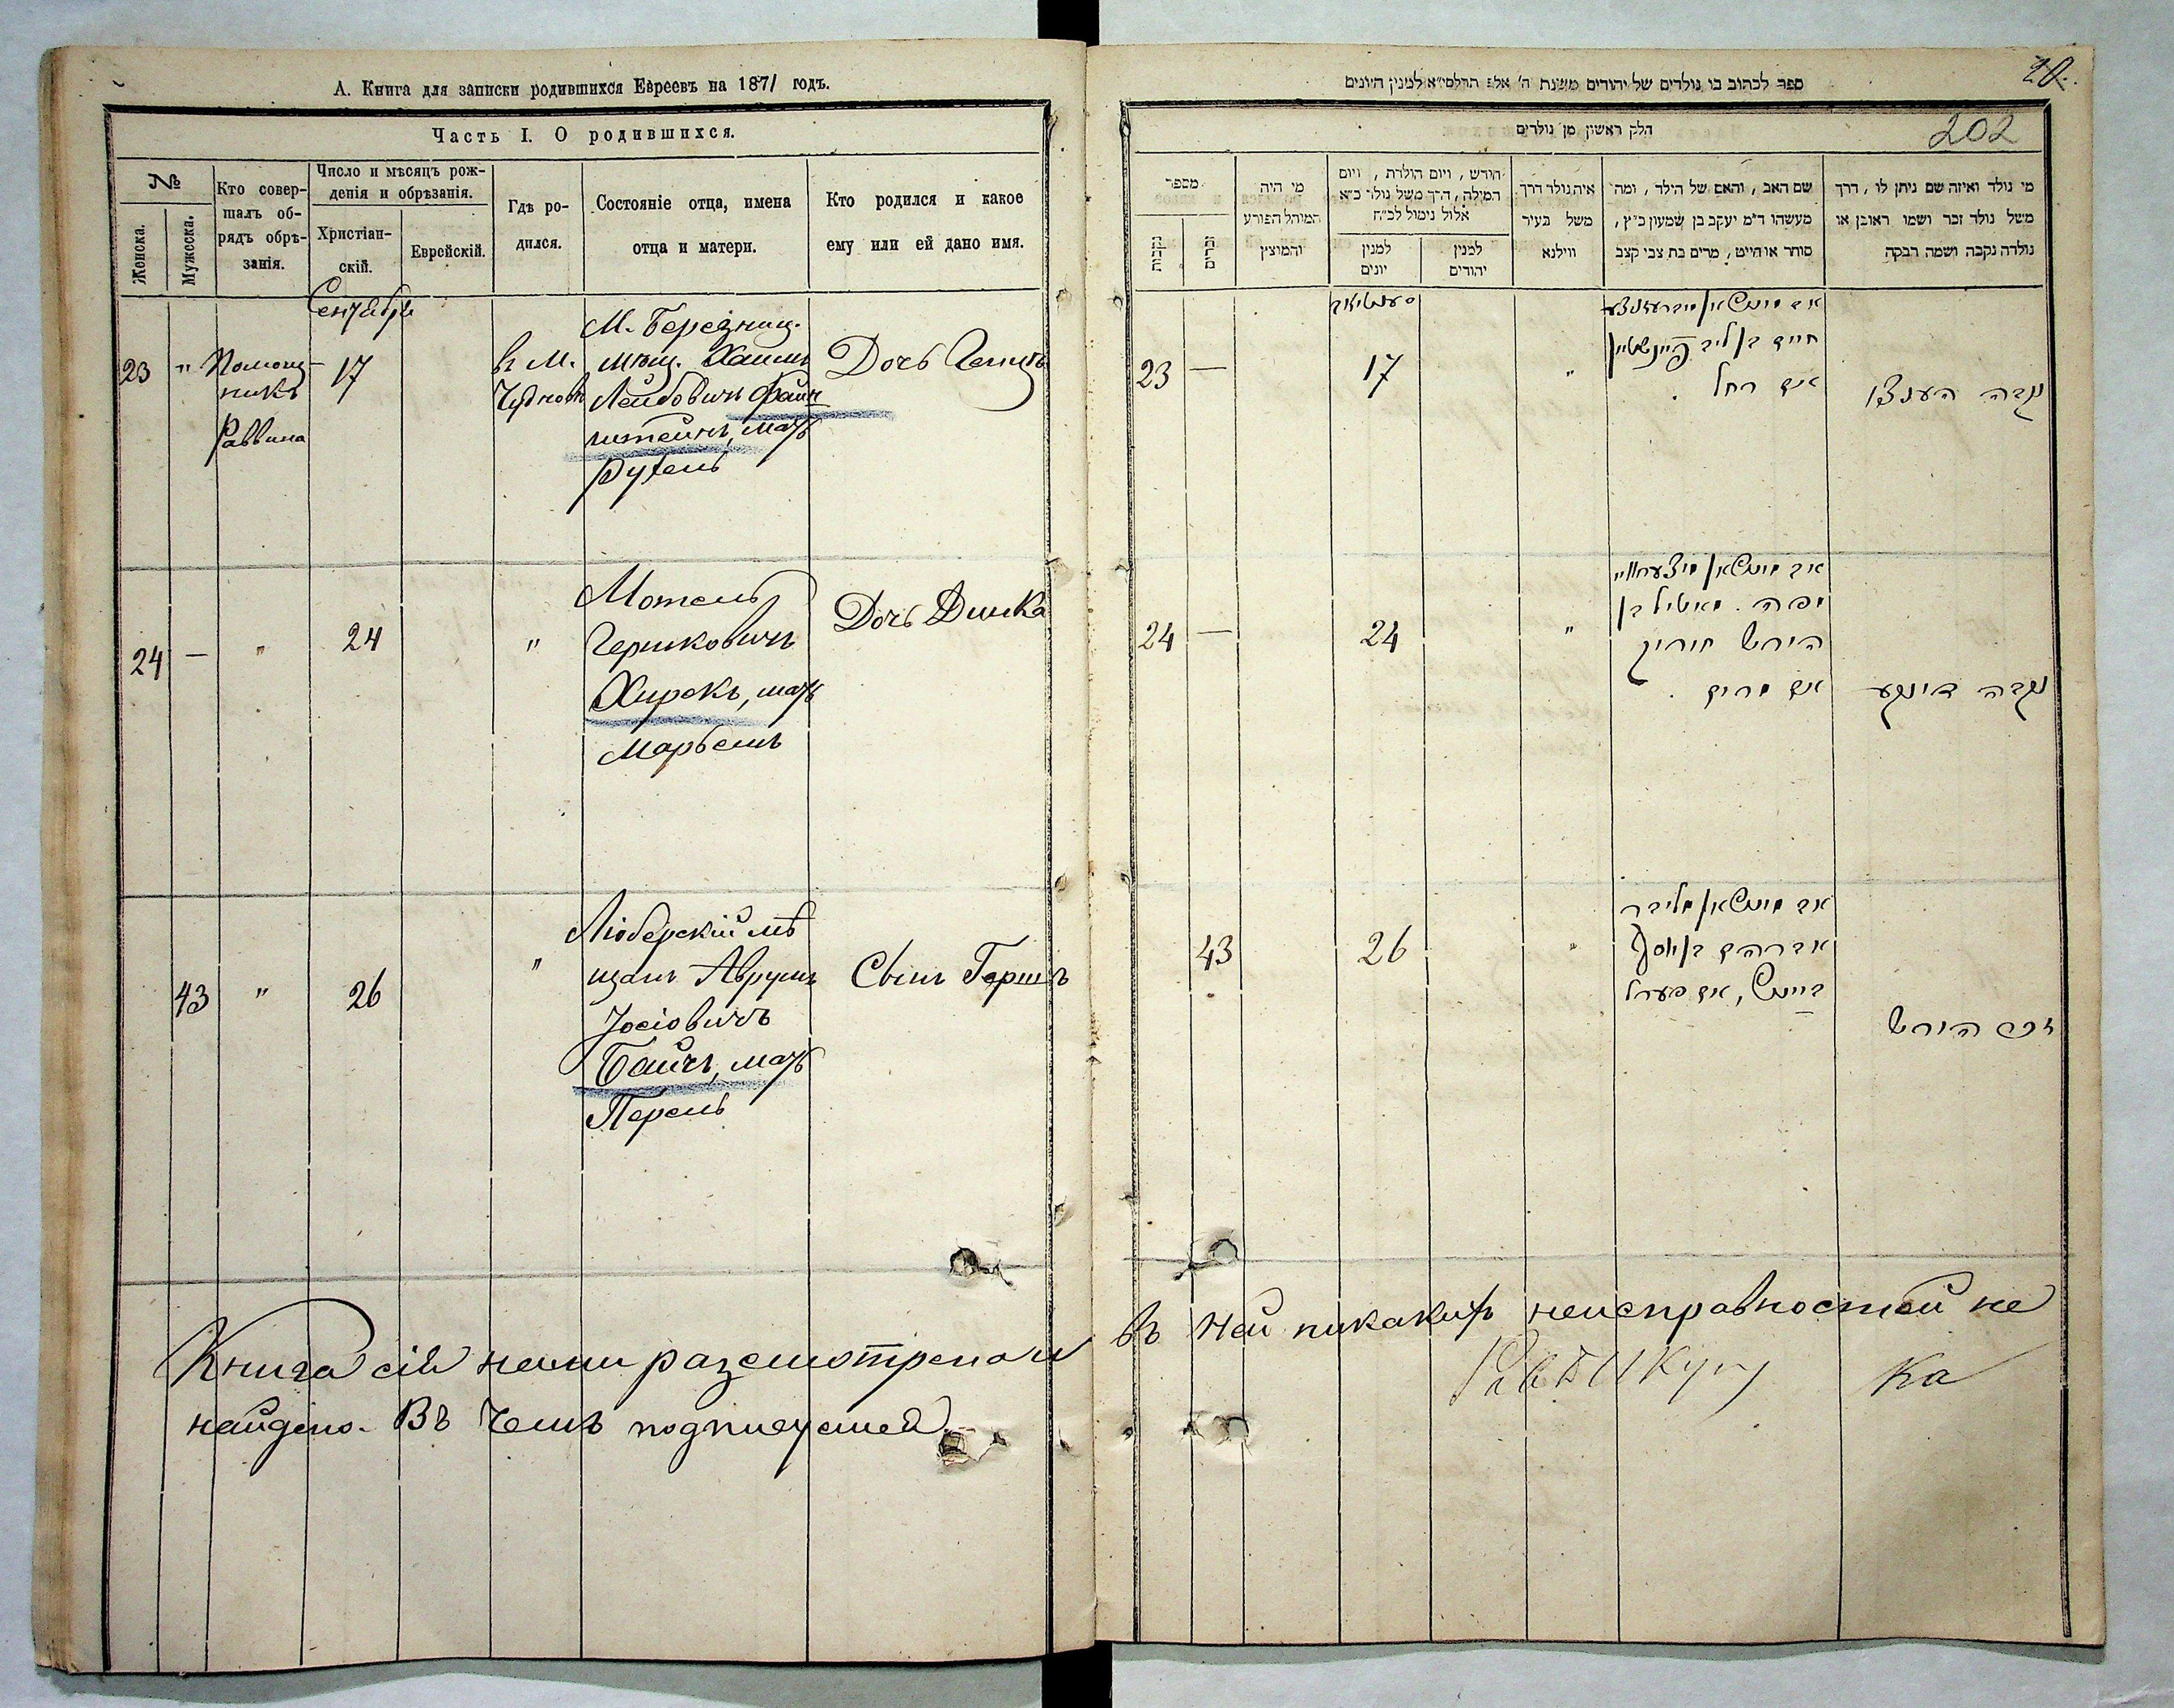 А. Книга для записки родившихся Евреевъ на 1871 годъ.
Часть I. О родившихся.
№
Женска.
Мужеска.
Кто совер-
шалъ об-
рядъ обрѣ-
занія.
Число и мѣсяцъ рож-
денія и обрѣзанія.
Христіан-
скій.
Еврейскій.
Гдѣ ро-
дился.
Состояніе отца, имена
отца и матери.
Кто родился и какое
ему или ей дано имя.
Сентября
23
"
Помощ-
никъ
Раввина
17
В м.
Чудновѣ
М. Березниц.
мѣщ. Хаимъ
Лейбовичъ Файн
штейнъ, мать
Рухель
Дочь
24
—
"
24
"
Мотель
Гершковичъ
Хирокъ, мать
Марьемъ
Дочь Динка
43
"
26
"
Любарскій мѣ
щан. Аврумъ
Іосіовичъ
Байчъ, мать
Перель
Сынъ Гершъ
Книга сія нами разсмотрена и
найдено. Въ чемъ подписуемся
20.
ספר לכתוב בו נולדים של יהודים משנת ה' אלפ תרלסי״א למנין היונים
202
חלק ראשון מן נולדים
מספר
נקבות
זכרים
מי היה
המוהל הפורע
והמוצץ
חורש, ויום הולדת, ויום
המילה, דרך משל נולד כ״א
אלול נימול לכ״ח
למנין
יונים
למנין
יהודים
איה נולד דרך
משל בעיר
ווילנא
שם האב, והאם של הילד, ומה
מעשהו ד״מ יעקב בן שמעון כ״ץ,
סוחר או חייט, מרים בת צבי קצב
מי נולד ואיזה שם ניתן לו, דרך
משל נולד זכר ושמו ראובן או
נולדה נקבה ושמה רבקה
23
—
17
"
חיים בן ליב פיינשטיין
אם רחל
נקבה הענצי
24
—
24
"
הירש חיריק
אם מרים
נקבה דינקע
43
26
"
אברהם בן יוסף
בייטש, אם פערל
זכר הירש
въ ней никакихъ неисправностей не